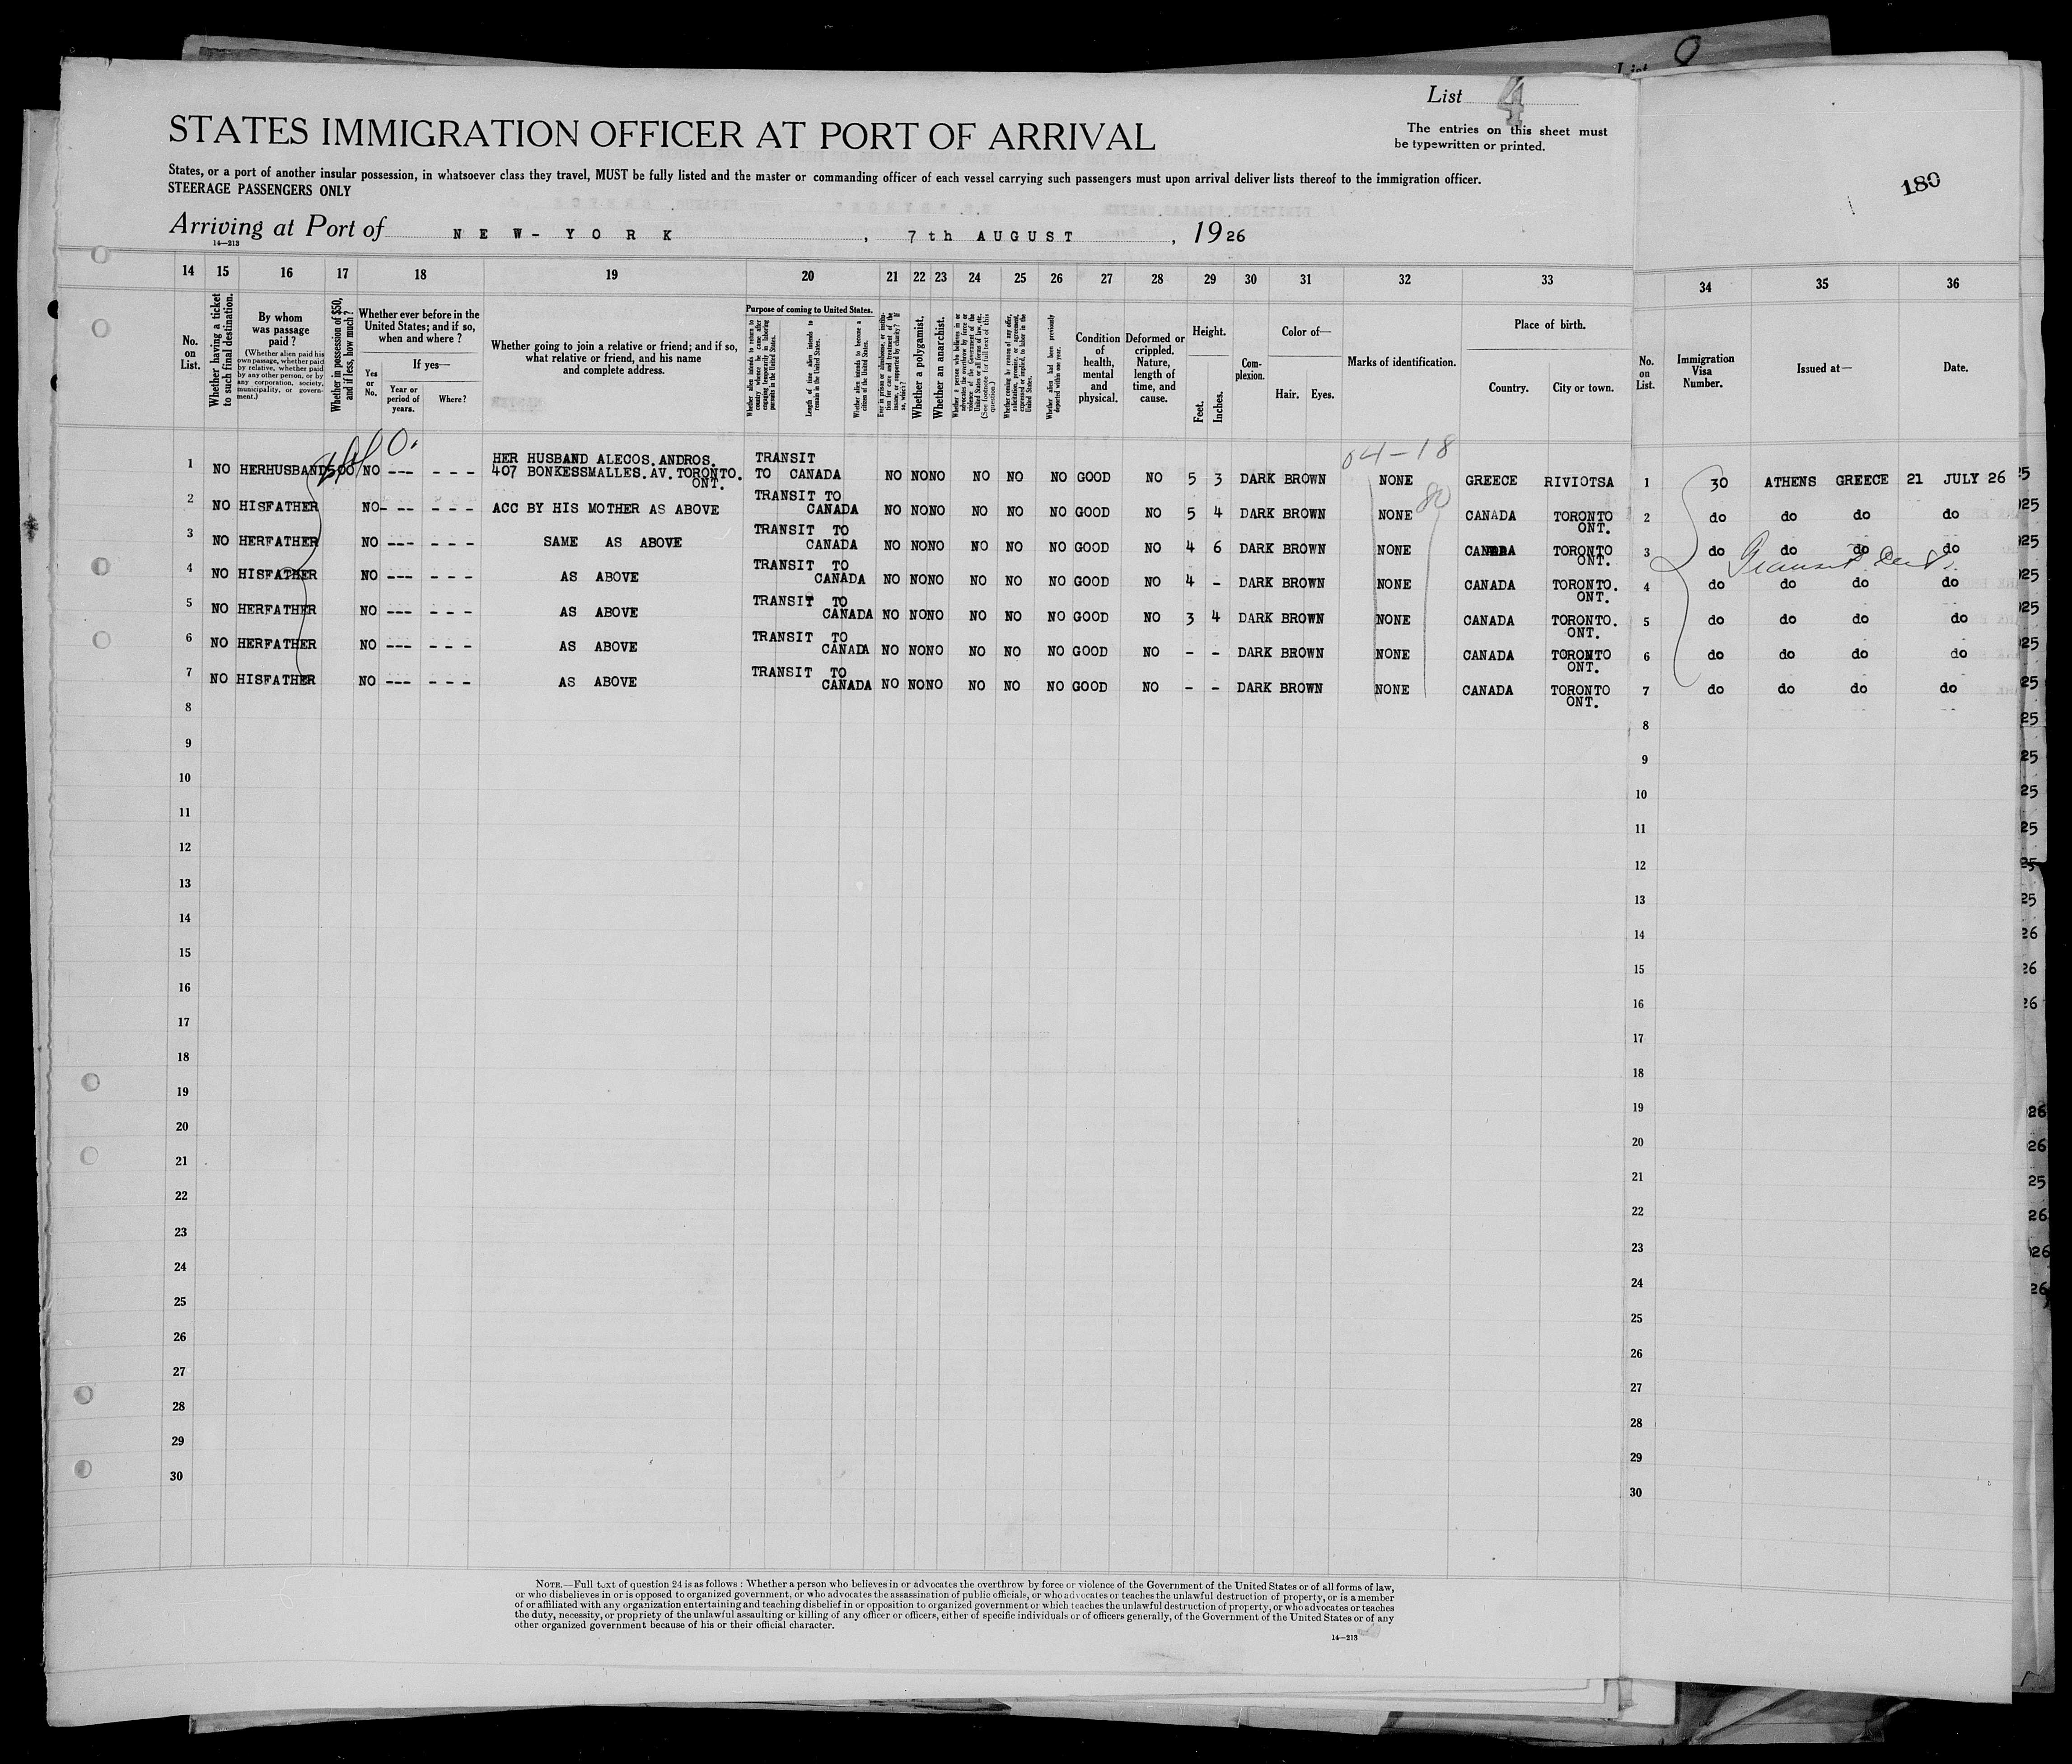 List 4
STATES IMMIGRATION OFFICER AT PORT OF ARRIVAL
The entries on this sheet must
be typewritten or printed.
States, or a port of another insular possession, in whatsoever class they travel, MUST be fully listed and the master or commanding officer of each vessel carrying such passengers must upon arrival deliver lists thereof to the immigration officer.
STEERAGE PASSENGERS ONLY
180
Arriving at Port of NEW-YORK, 7th AUGUST, 1926
14—213
14 15 16 17 18 19 20 21 22 23 24 25 26 27 28 29 30 31 32 33 34 35 36
No. on List.
Whether having a ticket to such final destination.
By whom was passage paid?
(Whether alien paid his own passage, whether paid by relative, whether paid by any other person, or by any corporation, society, municipality, or government.)
Whether in possession of $50, and if less, how much?
Whether ever before in the United States; and if so, when and where?
If yes—
Yes or No.
Year or period of years.
Where?
Whether going to join a relative or friend; and if so, what relative or friend, and his name and complete address.
Purpose of coming to United States.
Whether alien intends to return to country whence he came after engaging temporarily in laboring pursuits in the United States.
Length of time alien intends to remain in the United States.
Whether alien intends to become a citizen of the United States.
Ever in prison or almshouse, or institution for care and treatment of the insane, or supported by charity? If so, which?
Whether a polygamist.
Whether an anarchist.
Whether a person who believes in or advocates the overthrow by force or violence of the Government of the United States or all forms of law, etc. (See footnote for full text of this question.)
Whether coming by reason of any offer, solicitation, promise, or agreement, expressed or implied, to labor in the United States.
Whether alien had been previously deported within one year.
Condition of health, mental and physical.
Deformed or crippled. Nature, length of time, and cause.
Height.
Feet.
Inches.
Complexion.
Color of—
Hair.
Eyes.
Marks of identification.
Place of birth.
Country.
City or town.
No. on List.
Immigration Visa Number.
Issued at—
Date.
04-18
80
1 NO HERHUSBAND 500 NO --- --- HER HUSBAND ALECOS.ANDROS. TRANSIT
407 BONKESSMALLES.AV.TORONTO. ONT. TO CANADA NO NO NO NO NO NO GOOD NO 5 3 DARK BROWN NONE GREECE RIVIOTSA 1 30 ATHENS GREECE 21 JULY 26
2 NO HISFATHER NO- -- --- ACC BY HIS MOTHER AS ABOVE TRANSIT TO CANADA NO NO NO NO NO NO GOOD NO 5 4 DARK BROWN NONE CANADA TORONTO ONT. 2 do do do do
3 NO HERFATHER NO --- --- SAME AS ABOVE TRANSIT TO CANADA NO NO NO NO NO NO GOOD NO 4 6 DARK BROWN NONE CANADA TORONTO ONT. 3 do do do do
Transit
4 NO HISFATHER NO --- --- AS ABOVE TRANSIT TO CANADA NO NO NO NO NO NO GOOD NO 4 - DARK BROWN NONE CANADA TORONTO. ONT. 4 do do do do
5 NO HERFATHER NO --- --- AS ABOVE TRANSIT TO CANADA NO NO NO NO NO NO GOOD NO 3 4 DARK BROWN NONE CANADA TORONTO. ONT. 5 do do do do
6 NO HERFATHER NO --- --- AS ABOVE TRANSIT TO CANADA NO NO NO NO NO NO GOOD NO - - DARK BROWN NONE CANADA TORONTO ONT. 6 do do do do
7 NO HISFATHER NO --- --- AS ABOVE TRANSIT TO CANADA NO NO NO NO NO NO GOOD NO - - DARK BROWN NONE CANADA TORONTO ONT. 7 do do do do
8 8
9 9
10 10
11 11
12 12
13 13
14 14
15 15
16 16
17 17
18 18
19 19
20 20
21 21
22 22
23 23
24 24
25 25
26 26
27 27
28 28
29 29
30 30
NOTE.—Full text of question 24 is as follows: Whether a person who believes in or advocates the overthrow by force or violence of the Government of the United States or of all forms of law,
or who disbelieves in or is opposed to organized government, or who advocates the assassination of public officials, or who advocates or teaches the unlawful destruction of property, or is a member
of or affiliated with any organization entertaining and teaching disbelief in or opposition to organized government or which teaches the unlawful destruction of property, or who advocates or teaches
the duty, necessity, or propriety of the unlawful assaulting or killing of any officer or officers, either of specific individuals or of officers generally, of the Government of the United States or of any
other organized government because of his or their official character.
14—213